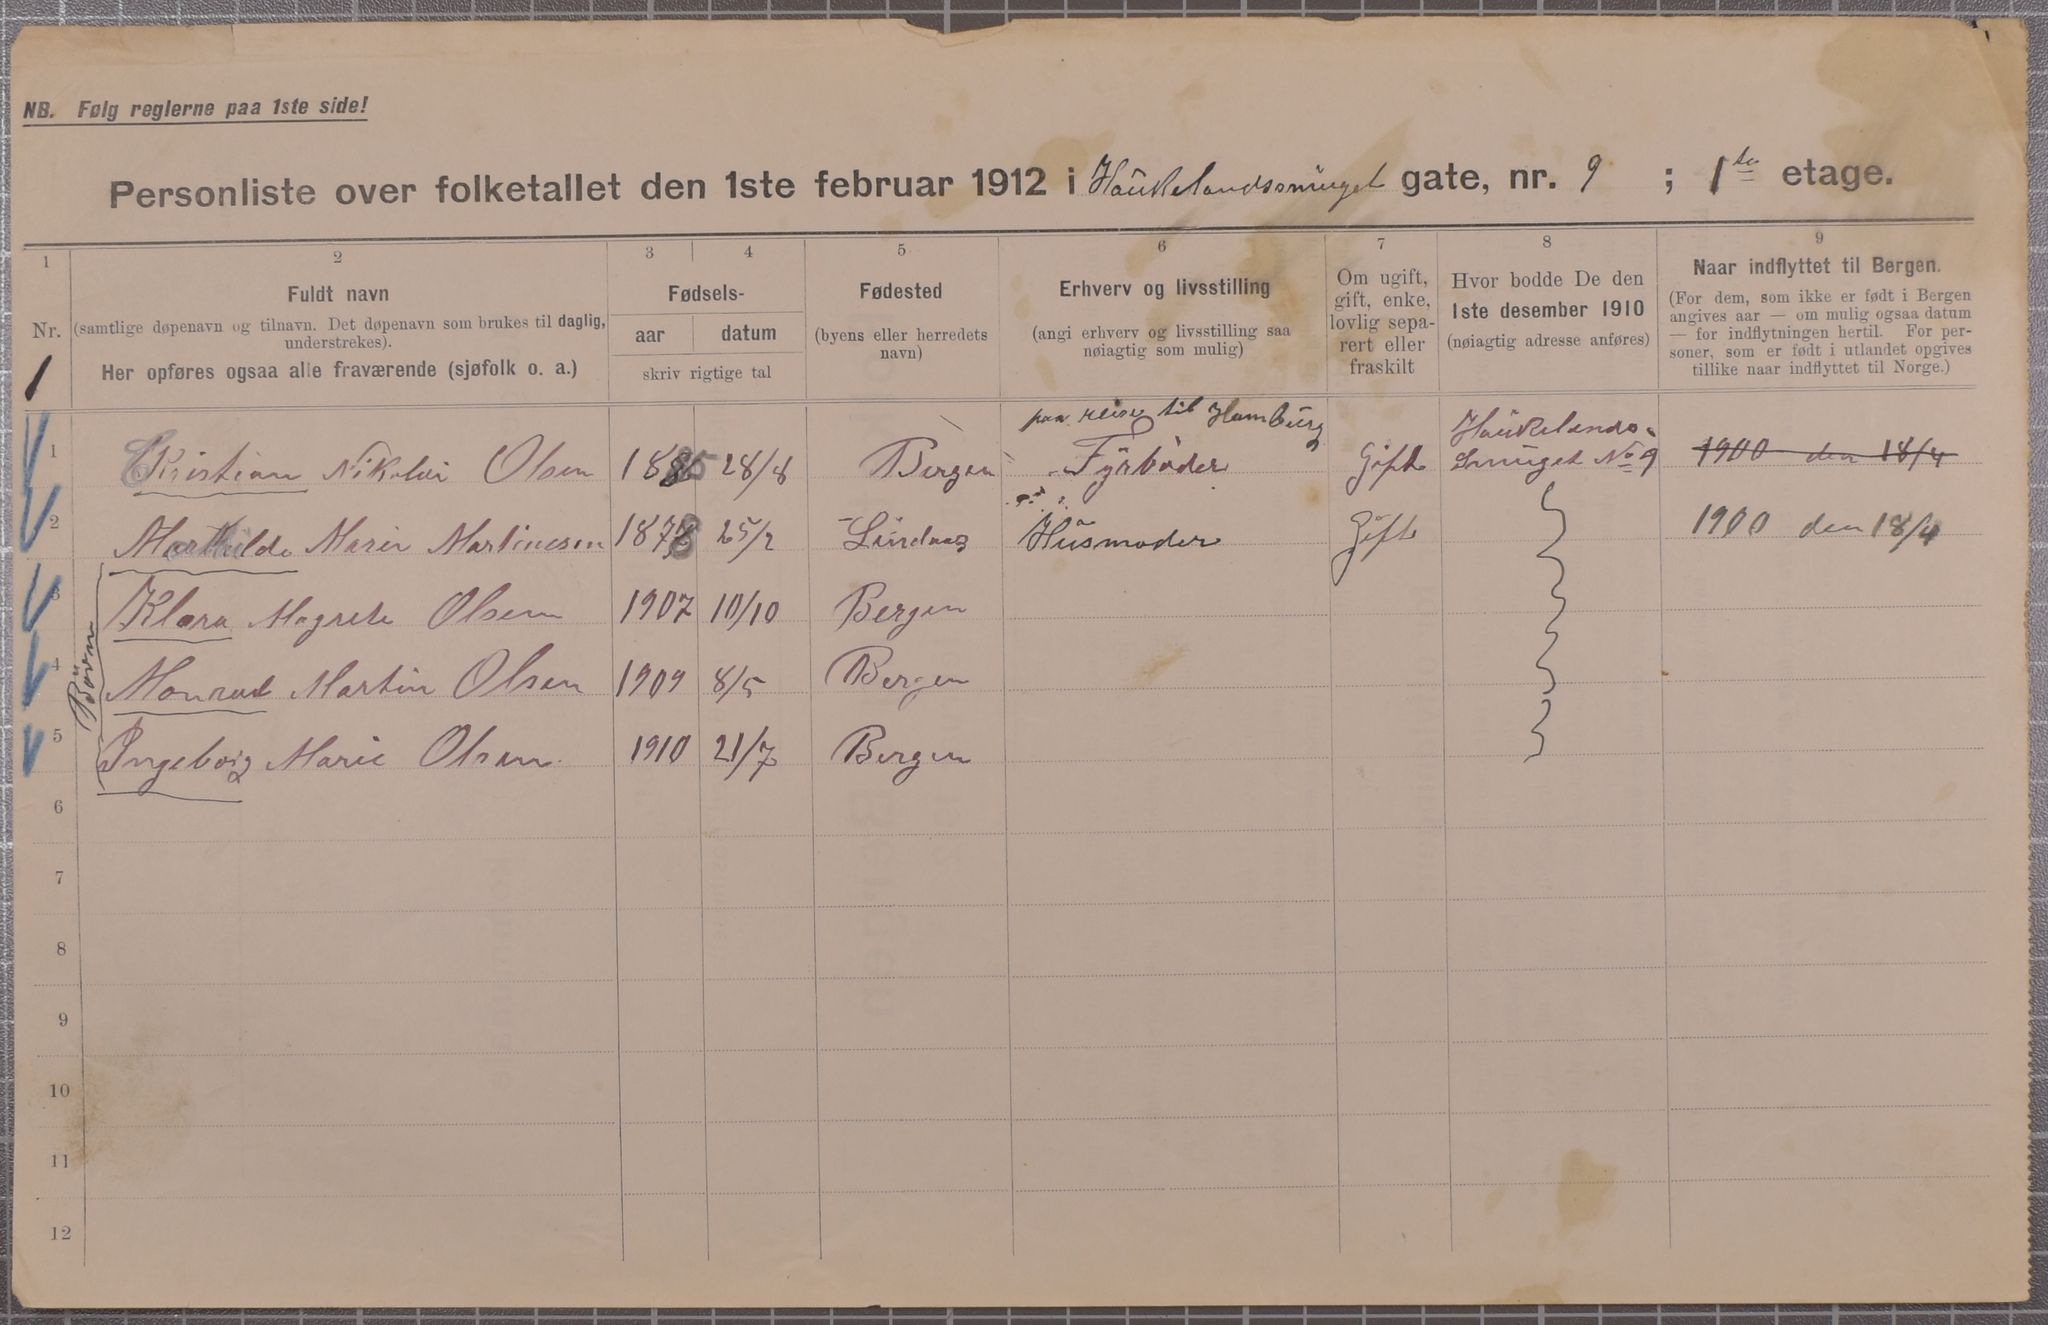 NB. Følg reglerne paa 1ste side!
Personliste over folketallet den 1ste februar 1912 i Haukelandssmuget gate, nr. 9 ; 1ste etage.
1 2 3 4 5 6 7 8 9
Nr.
1
Fuldt navn
(samtlige døpenavn og tilnavn. Det døpenavn som brukes til daglig, understrekes).
Her opføres ogsaa alle fraværende (sjøfolk o. a.)
Fødsels-
aar datum
skriv rigtige tal
Fødested
(byens eller herredets
navn)
Erhverv og livsstilling
(angi erhverv og livsstilling saa
nøiagtig som mulig)
Om ugift,
gift, enke,
lovlig sepa-
rert eller
fraskilt
Hvor bodde De den
1ste desember 1910
(nøiagtig adresse anføres)
Naar indflyttet til Bergen.
(For dem, som ikke er født i Bergen
angives aar — om mulig ogsaa datum
— for indflytningen hertil. For per-
soner, som er født i utlandet opgives
tillike naar indflyttet til Norge.)
paa reise til Hamburg
1 Kristian Nikolai Olsen 1885 28/8 Bergen Fyrbøder Gift Haukelands-
smuget No 9 1900 den 18/4
2 Mathilde Marie Martinesen 1878 25/2 Lindaas Husmoder Gift 1900 den 18/4
Börn
3 Klara Magrete Olsen 1907 10/10 Bergen
4 Monrad Martin Olsen 1909 8/5 Bergen
5 Ingeborg Marie Olsen 1910 21/7 Bergen
6
7
8
9
10
11
12